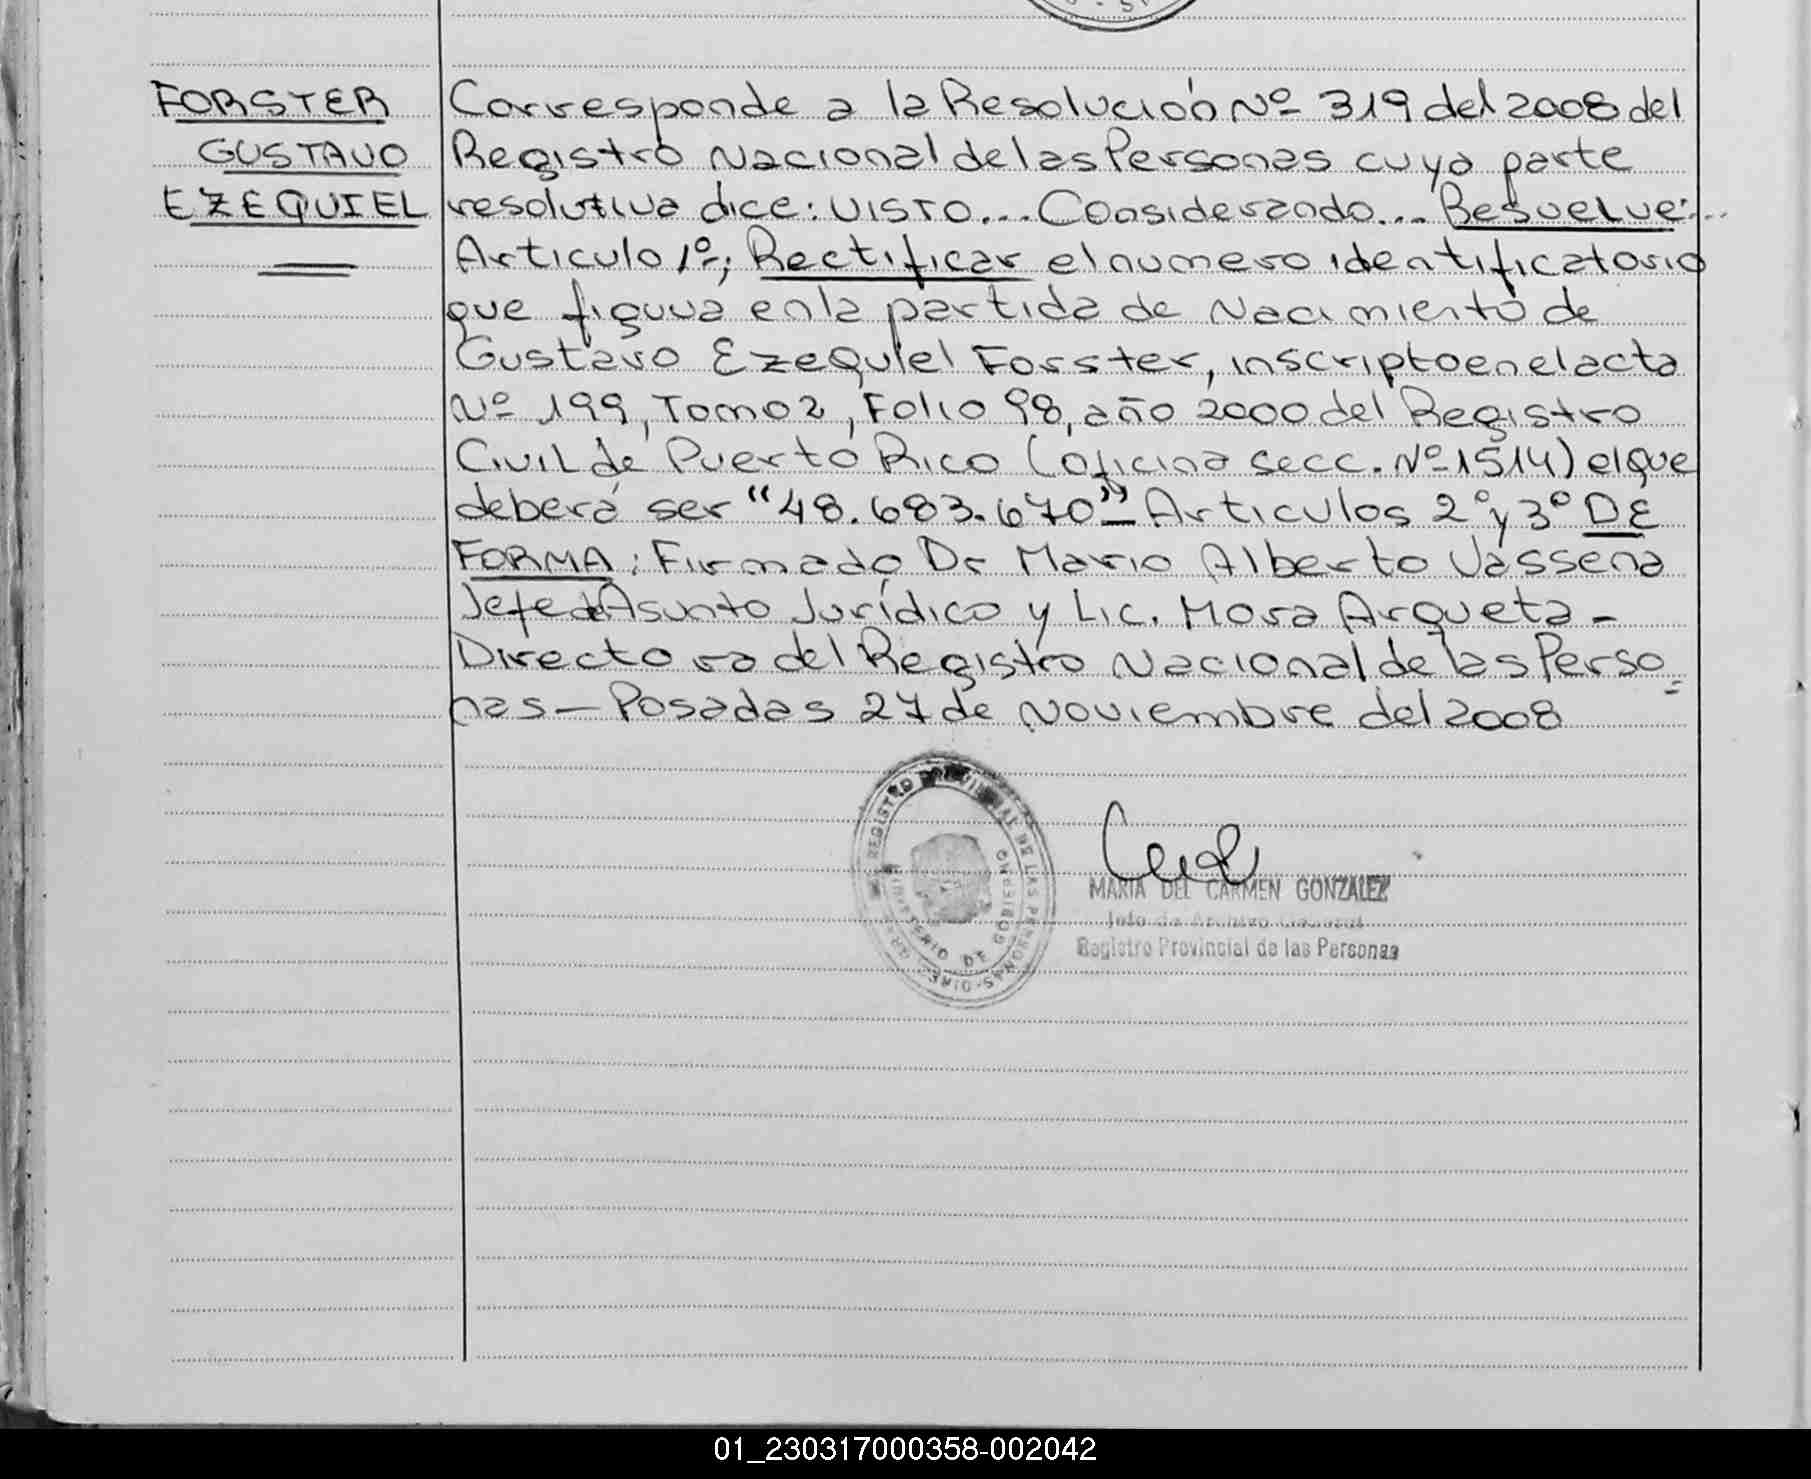 FORSTER
GUSTAVO
EZEQUIEL
Corresponde a la Resolución Nº 319 del 2008 del
Registro Nacional de las Personas cuya parte
resolutiva dice: VISTO... Considerando... Resuelve:...
Articulo 1º; Rectificar el numero identificatorio
que figura en la partida de Nacimiento de
Gustavo Ezequiel Forster, inscripto en el acta
Nº 199, Tomo 2, Folio 98, año 2000 del Registro
Civil de Puerto Rico (oficina secc. Nº 1514) el que
deberá ser "48.683.670" - Articulos 2º y 3º DE
FORMA: Firmado Dr Mario Alberto Vassena
Jefe de Asunto Jurídico y Lic. Mora Arqueta -
Directora del Registro Nacional de las Perso
nas - Posadas 27 de Noviembre del 2008
REGISTRO PROVINCIAL DE LAS PERSONAS
MINISTERIO DE GOBIERNO
MARIA DEL CARMEN GONZALEZ
Jefe de Archivo General
Registro Provincial de las Personas
01_230317000358-002042